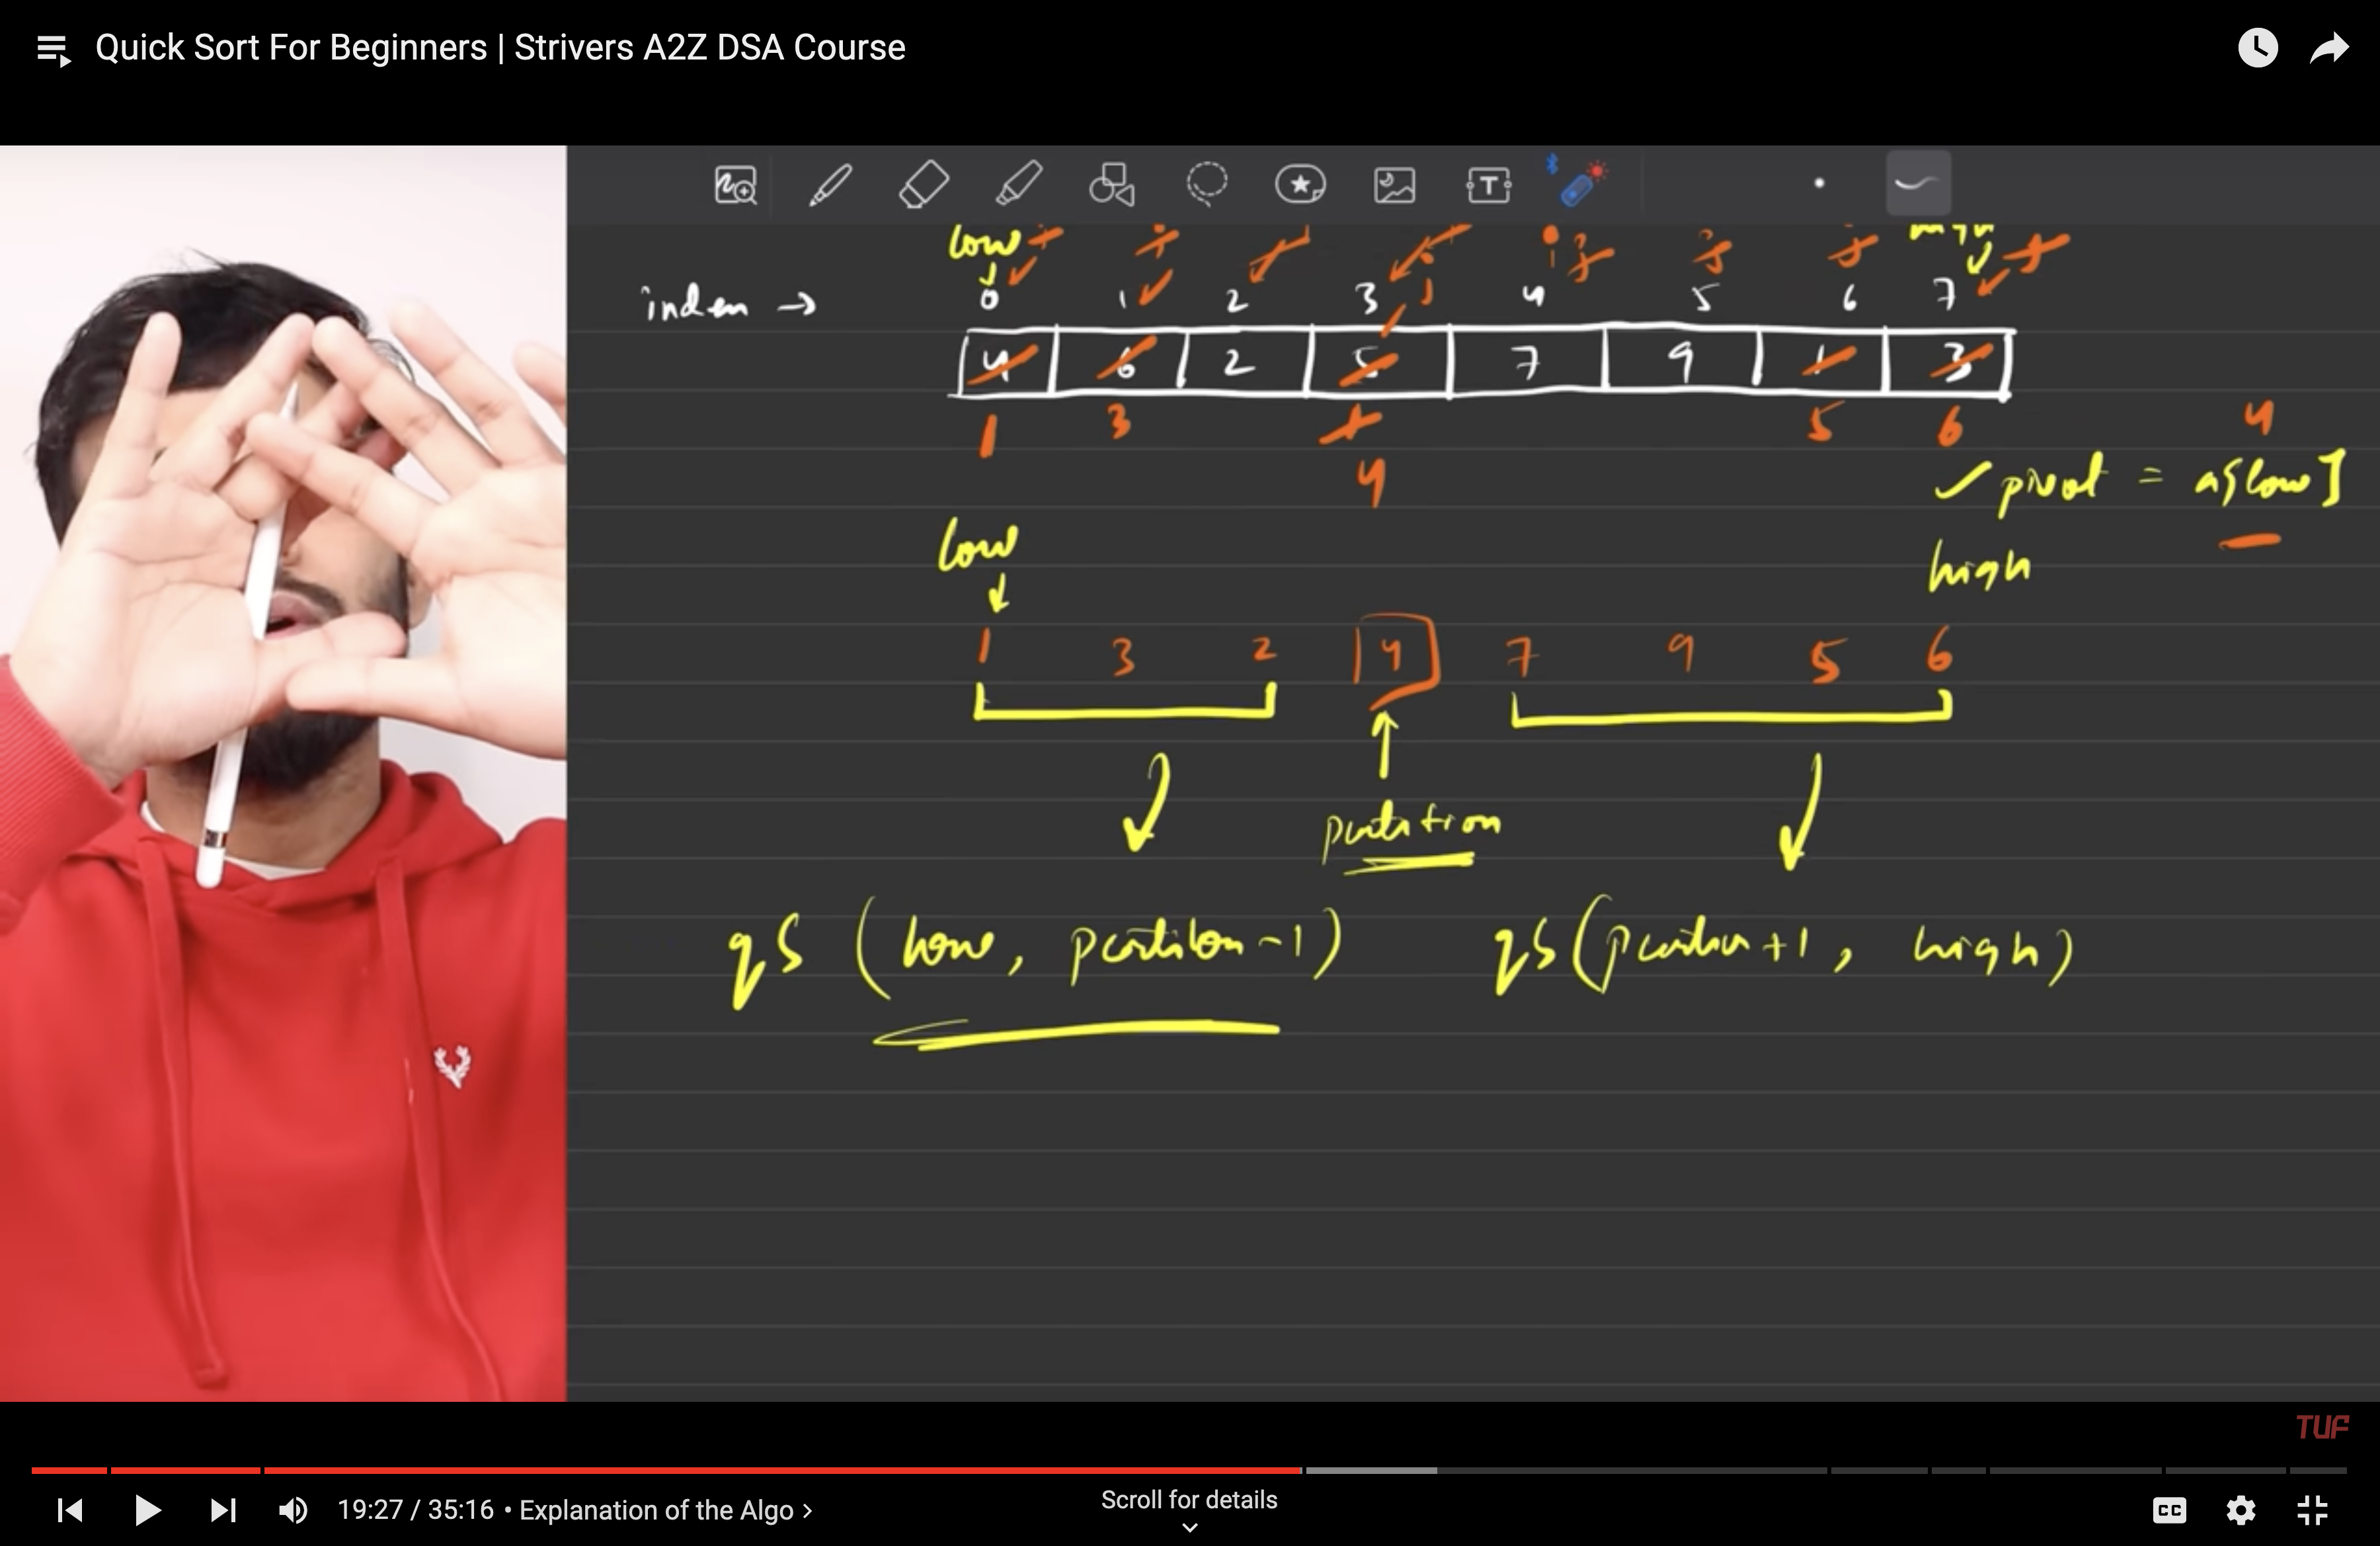 Quick Sort For Beginners | Strivers A2Z DSA Course
low
index → 0 1 2 3 4 5 6 7
4 6 2 5 7 9 1 3
1 3 1 5 6 4
4
✓ pivot = a[low]
low high
1 3 2 4 7 9 5 6
partition
qs (low, partition-1) qs(partition+1, high)
TUF
19:27 / 35:16 • Explanation of the Algo >
Scroll for details
CC